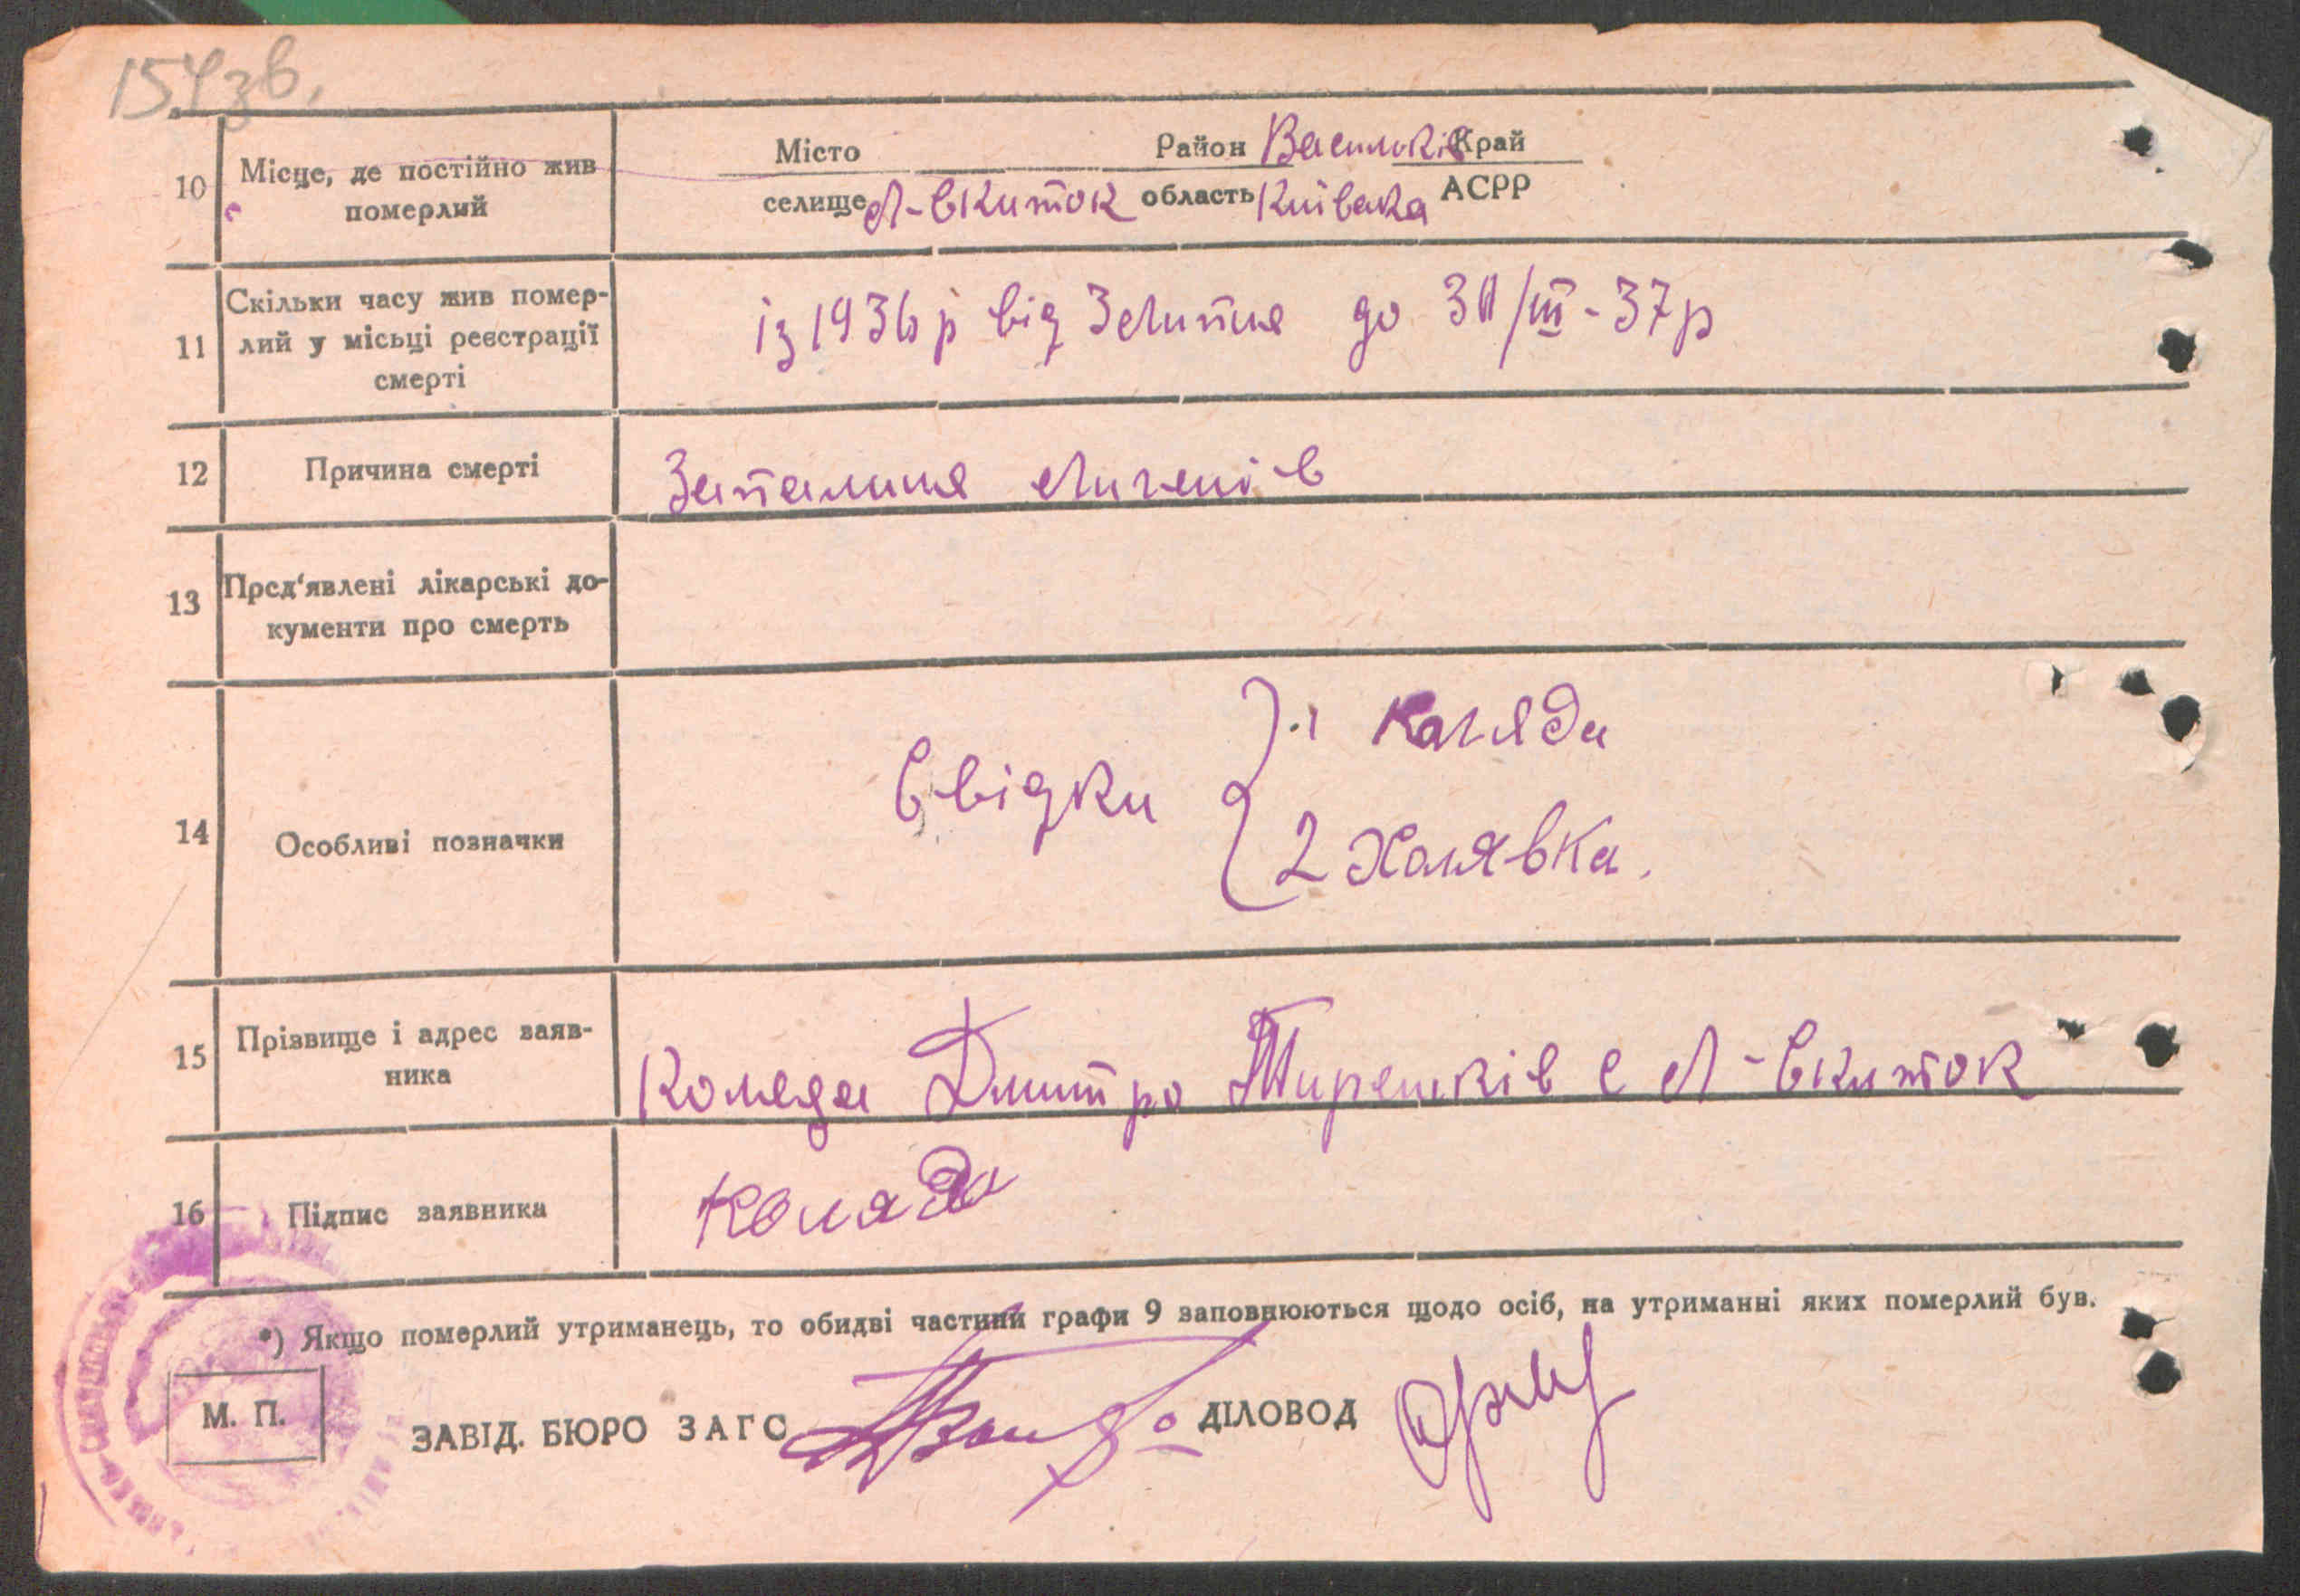 154зв.
10 Місце, де постійно жив померлий
Місто Район Васильків Край
селище Л-Вкиток область Київска АСРР
11 Скільки часу жив помер-
лий у місьці реєстрації
смерті
із 1936 р від 3 Липня до 30/III-37р
12 Причина смерті
Запалиня Личенів
13 Пред'явлені лікарські до-
кументи про смерть
14 Особливі позначки
Свідки
1 Каляда
2 Халявка.
15 Прізвище і адрес заяв-
ника
Коляда Дмитро с Л-Вкиток
16 Підпис заявника
Коляда
*) Якщо померлий утриманець, то обидві частини графи 9 заповнюються щодо осіб, на утриманні яких померлий був.
М. П.
ЗАВІД. БЮРО ЗАГС
ДІЛОВОД